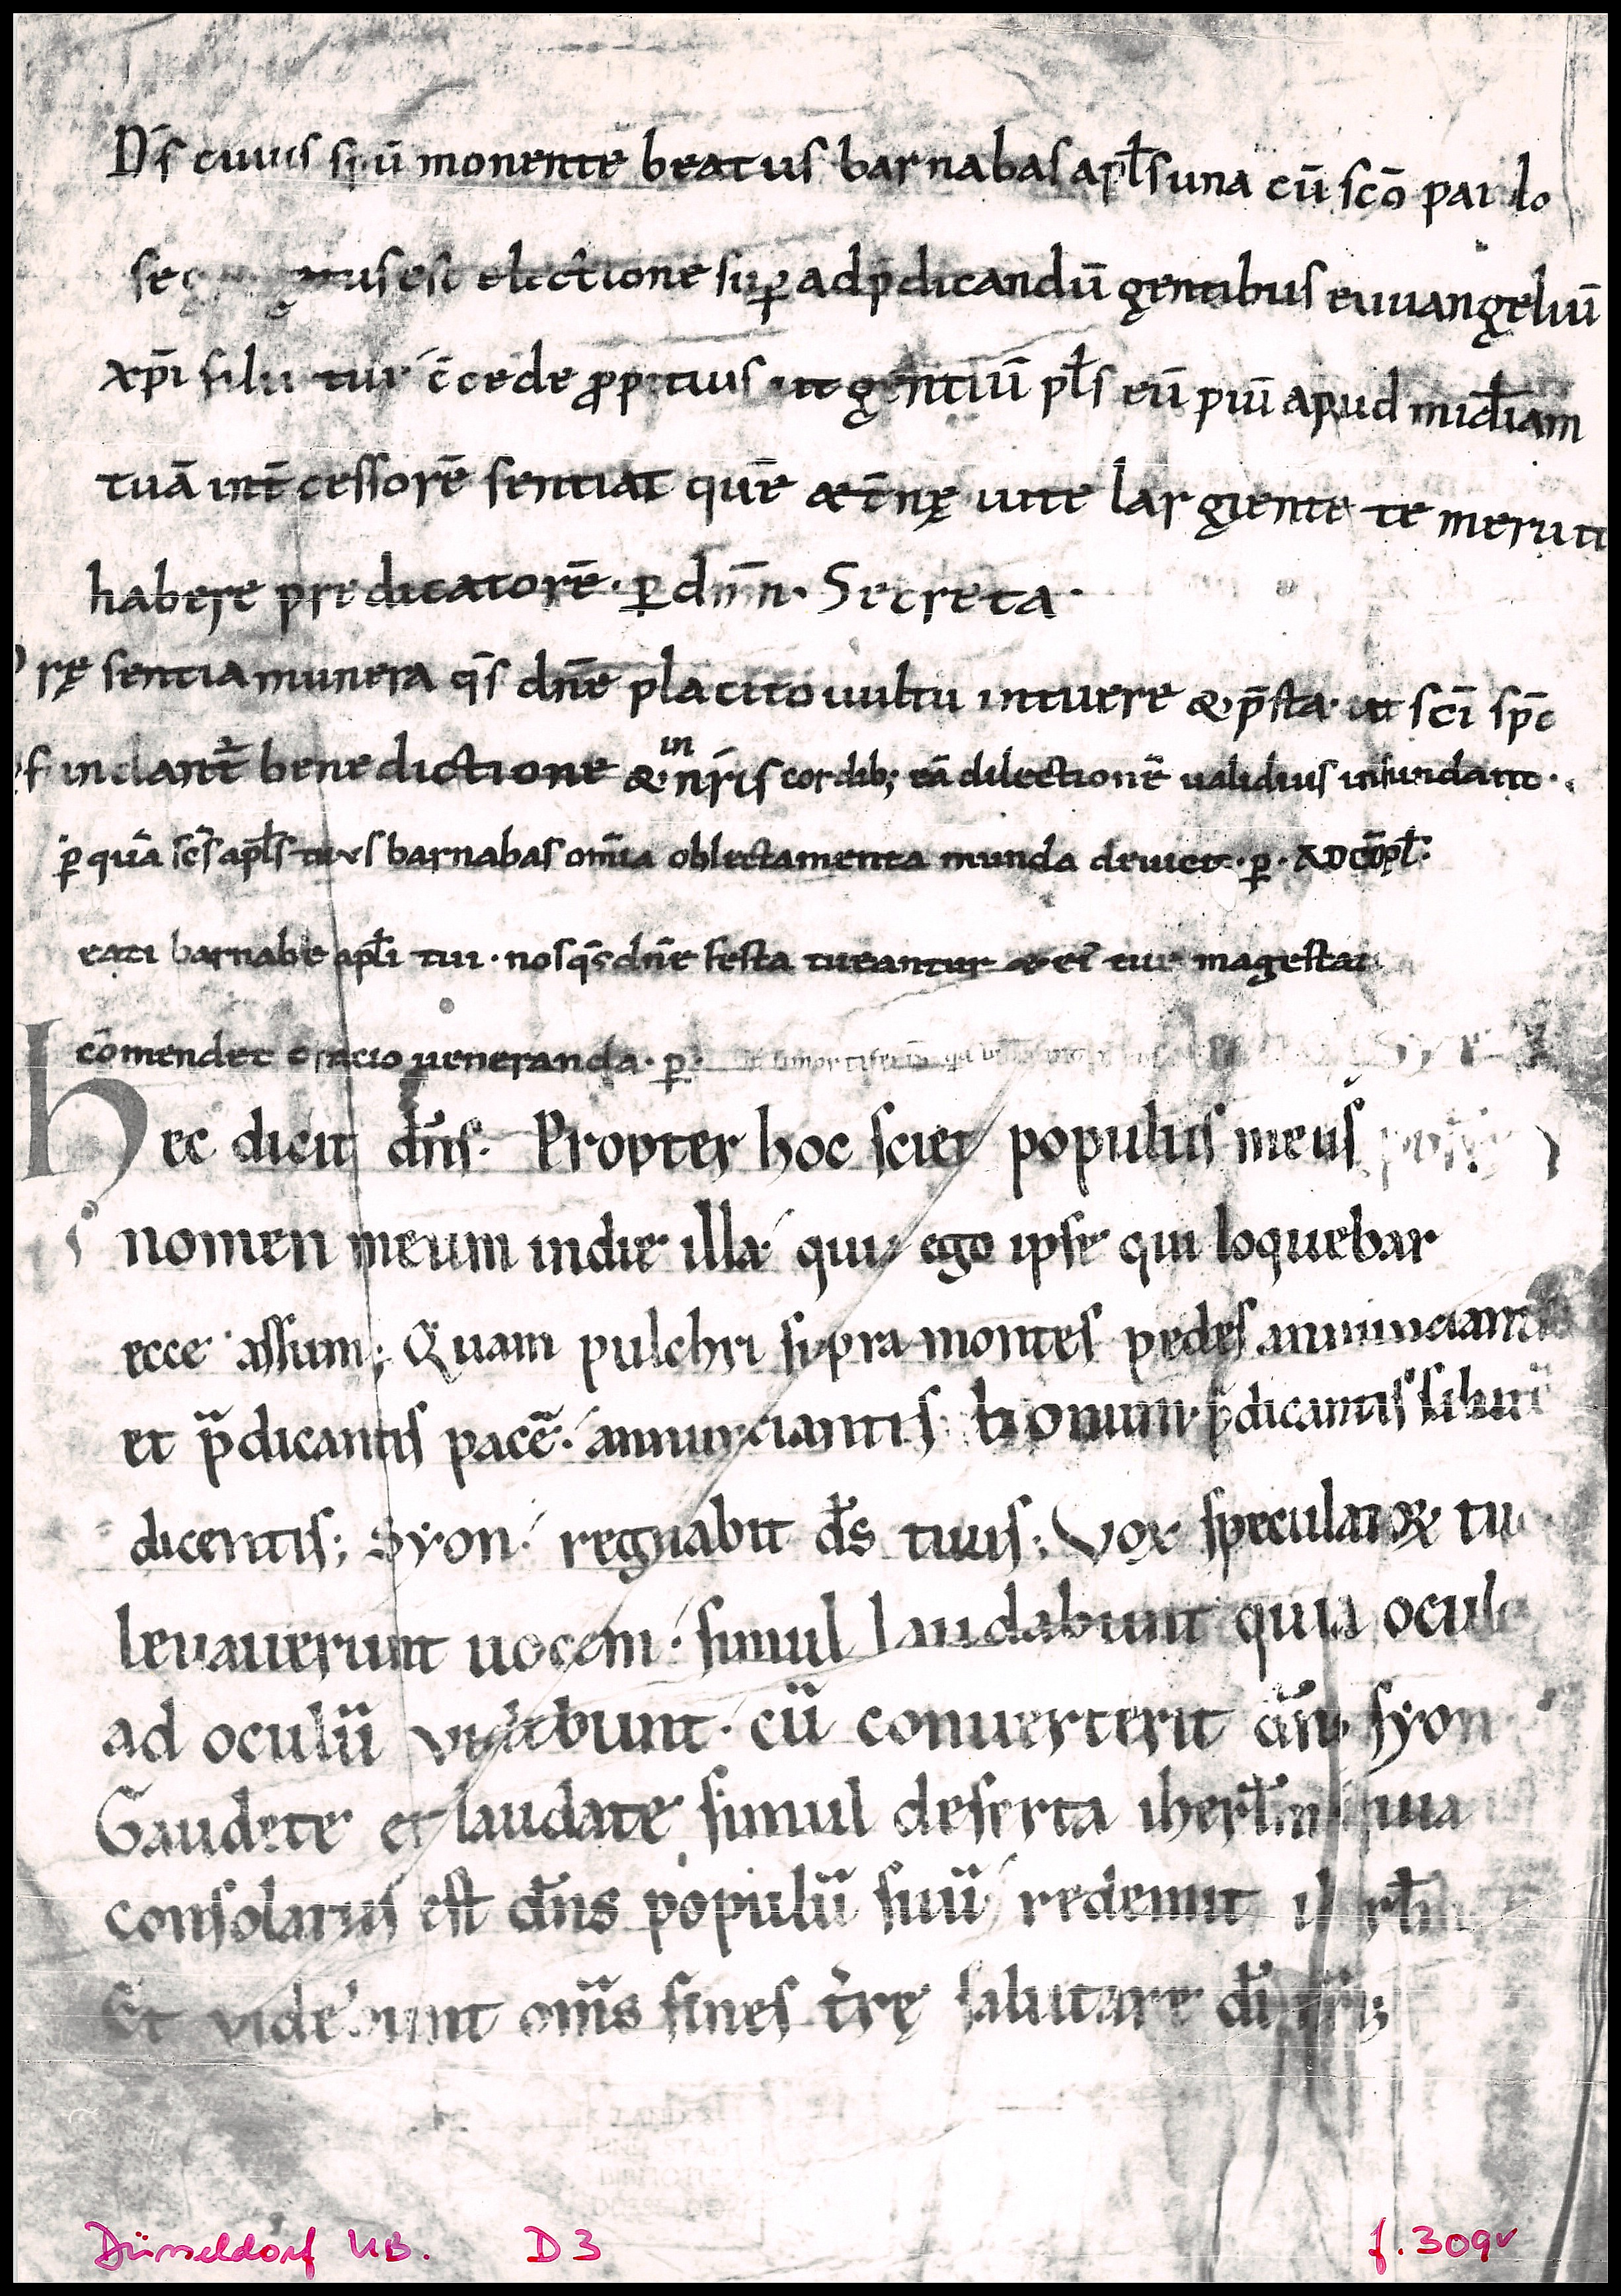 Ds̄ cuius spū monente beatus barnabas apłs una cū scō paulo
est electione sup̱ ad p̄dicandū gentibus euuangeliū
xp̄i filii tui c̄cede ꝓpitius ut gentiū płs eū piū apud miđiam
tuā int̄cessorē sentiat quē æt̄nę uite largiente te meruit
habere predicatorē · ꝑ dn̄m · Secreta ·
Prę sentia munera qs̄ dn̄e placito uultu intuere & p̄sta · ut scī sp̄c
benedictione & in nr̄is cordib; eā dilectionē ualidius infundant ·
ꝑ quā scs̄ apłs tuus barnabas om̄ia oblectamenta munda deuicit · ꝑ · AD cōpł ·
eati barnabe apłi tui · nos qs̄ dn̄e festa tueantur & ei tue magestati
cōmendet oracio ueneranda · ꝑ ·
Hec dicit dn̄s · Propter hoc sciet populus meus
nomen meum in die illa quia ego ipse qui loquebar
ecce assum; Quam pulchri supra montes pedes annunciantis
et p̄dicantis pacē · annunciantis bonum · p̄dicantis salutē
dicentis; Syon · regnabit ds̄ tuus; Vox speculatoꝝ tu
leuauerunt uocem · simul laudabunt quia oculo
ad oculū videbunt · cū conuerterit dn̄s syon
Gaudete et laudate simul deserta iherłm quia
consolatus est dn̄s populū suū redemit
Et videbunt om̄s fines t̄rę salutare dī nr̄i;
Düsseldorf UB. D3 f. 309v